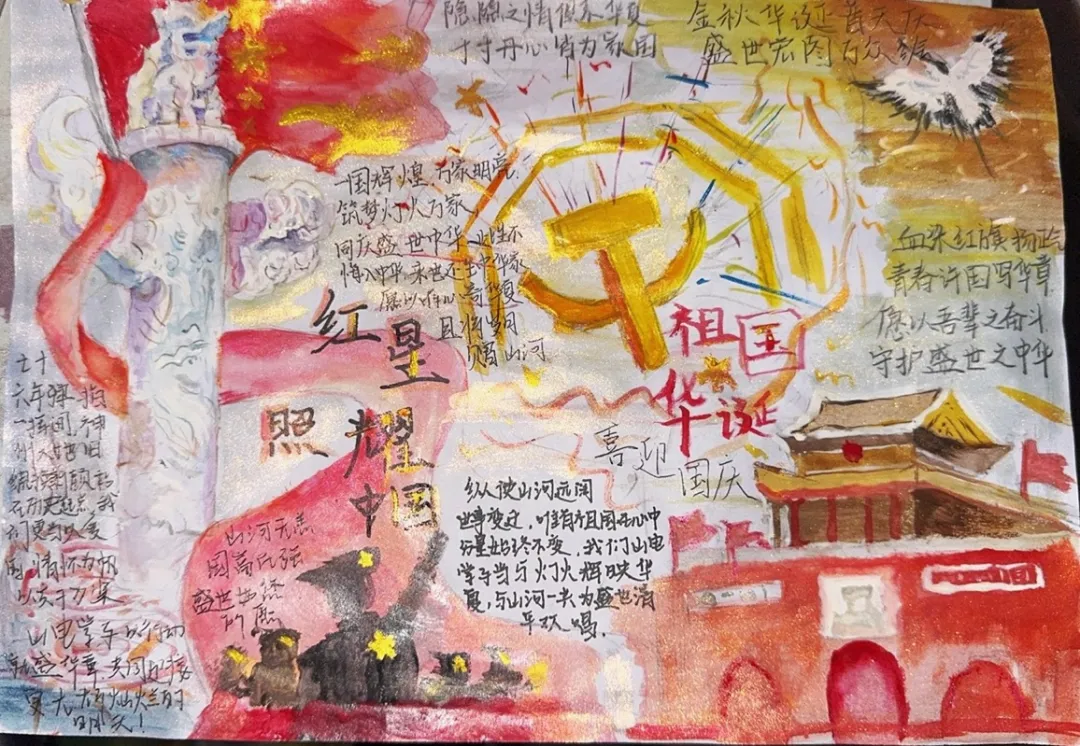 隐隐之情但系华夏
寸寸丹心皆为家国
金秋华诞普天庆
盛世宏图万众
一国辉煌 万家明亮
筑梦灯火万家
同庆盛世中华 此生不
悔入中华 来世还生中华家
愿以 心 华夏
且将岁月
赠山河
血染红旗扬
青春许国写华章
愿以吾辈之奋斗
守护盛世之中华
红星
照耀
中国
祖国
华诞
喜迎
国庆
七十
六年弹指
一挥间 神
州大地旧
貌换新颜 站
在历史起点 我
们更当以爱
国情怀为帆
山电学子以行动
盛华章 共同迎接
更加灿烂的
明天!
山河无恙
国富民强
盛世
所愿
纵使山河远阔
世事变迁,唯有祖国在心中
分量始终不变,我们山电
学子当与灯火辉映华
夏,与山河一共为盛世
年欢唱.